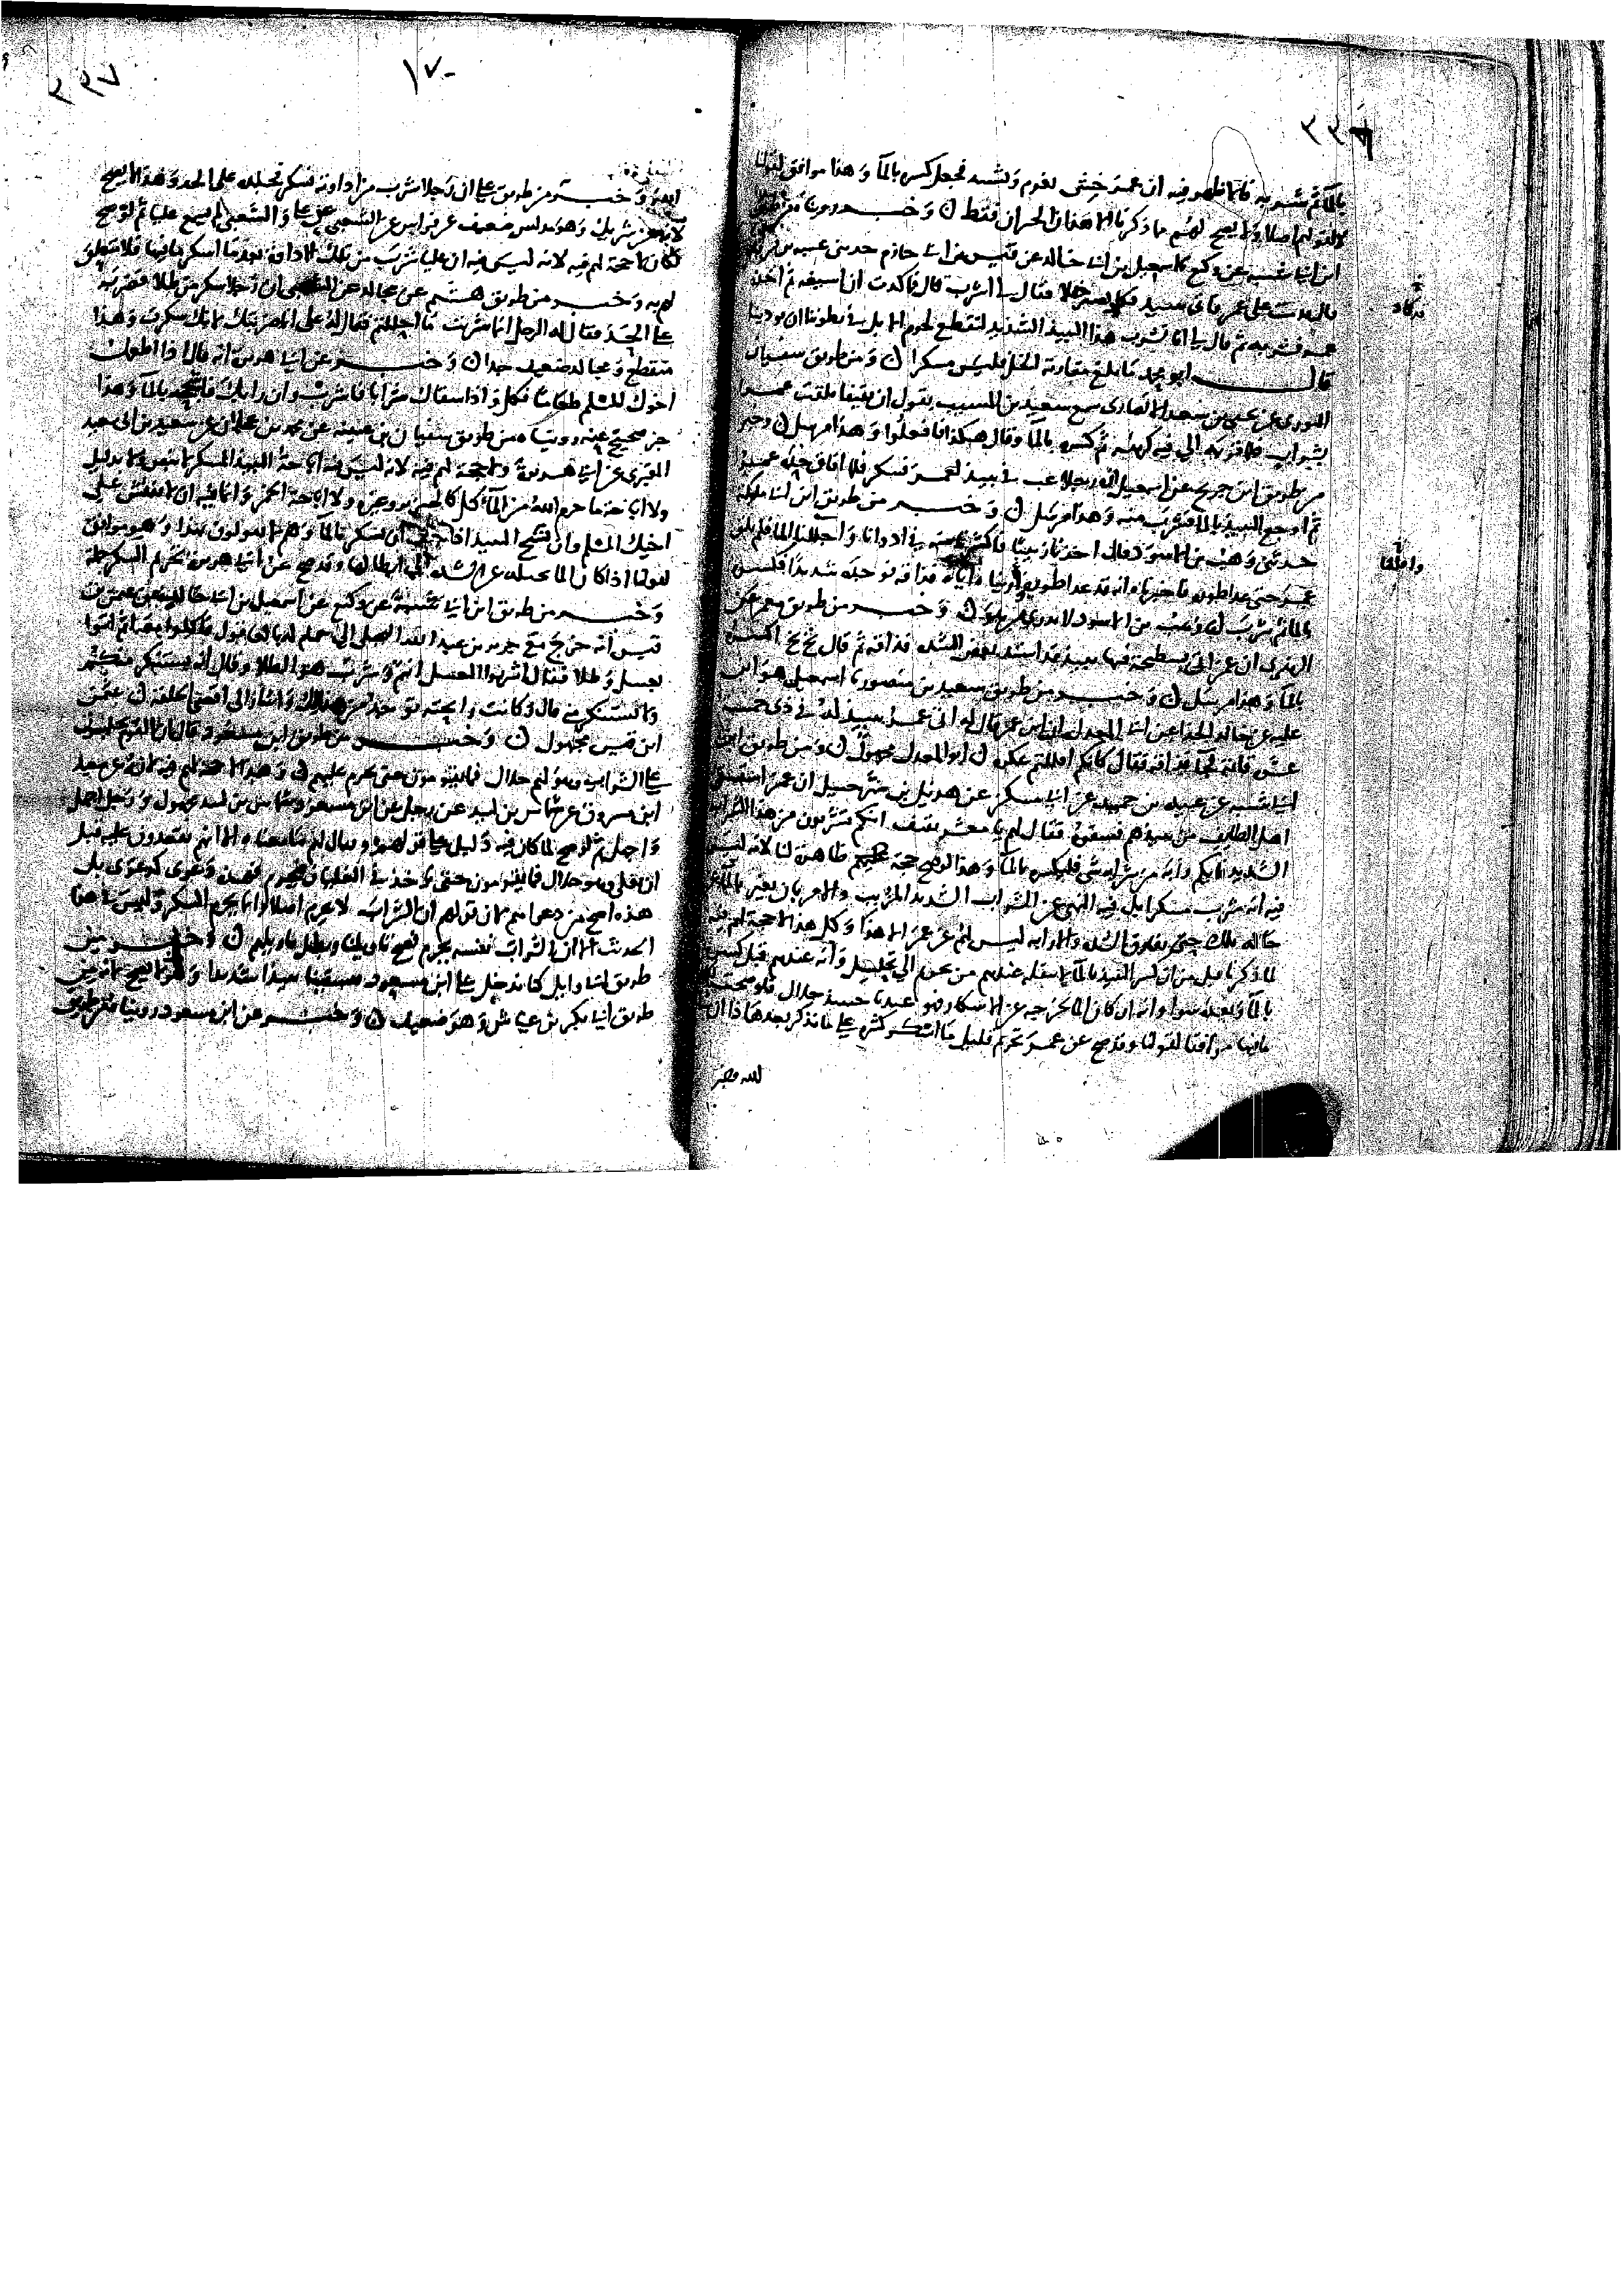 ٣٣٦
بالماء ثم شربه فانما ظهر فيه ان عمر خشي لقوم ولشده فجعل كسره بالماء وهذا موافق لقولنا
لا لقولهم اصلا ولا يصح لهم مما ذكرنا الا هذان الخبران فقط ن وخبر رويناه من طريق
ابن ابي شيبه عن وكيع نا اسمعيل بن ابي خالد عن قيس بن ابي حازم حدثني عتبه بن فرقد
قال قدمت على عمر فاتي بنبيذ قد كاد يصير خلا فقال لي اشرب قال فما كدت ان اسيغه ثم اخذه
عمر فشربه ثم قال لي انا نشرب هذا النبيذ الشديد لنقطع لحوم الابل في بطوننا ان يوذينا
قال ابو محمد ما بلغ مقاربة الخل فليس مسكرا ن ومن طريق سفيان
الثوري عن يحيى بن سعيد الانصاري سمع سعيد بن المسيب يقول ان ثقيفا تلقت عمر
بشراب فلما قربه الى فيه كرهه ثم كسره بالماء وقال هكذا فافعلوا وهذا مرسل ن وخبر
من طريق ابن جريج عن اسمعيل ان رجلا عب في نبيذ لعمر فسكر فلما افاق حده عمر
ثم اوجع النبيذ بالماء فشرب منه وهذا مرسل ن وخبر من طريق ابن ابي مليكة
حدثني وهب بن الاسود قال اخذنا زبيبا فاكثرنا منه في اداوانا واقللنا الماء فلم يلق
عمر حتى عدا طوره فاخبرناه انه قد عدا طوره واريناه اياه فذاقه فوجده شديدا فكسره
بالماء ثم شرب ن وهب بن الاسود لا يدرى من هو ن وخبر من طريق معمر عن
الزهري ان عمر اتي بسطيحة فيها نبيذ قد اشتد بعض الشده فذاقه ثم قال بخ بخ اكسره
بالماء وهذا مرسل ن وخبر من طريق سعيد بن منصور نا اسمعيل هو ابن
عليه عن خالد الحذا عن ابي المعدل ان ابن عمر قال له ان عمر ينبذ له في خمس
عشره قائما فجاء فذاقه فقال كانكم اقللتم عكره ن ابو المعدل مجهول ن ومن طريق ابن
ابي شيبه عن عبيده بن حميد عن ابي مسكين عن هذيل بن شرحبيل ان عمر استسقى
اهل الطايف من نبيذهم فسقوه فقال لهم يا معشر ثقيف انكم تشربون من هذا الشراب
الشديد فايكم رابه من شرابه شي فليكسره بالماء وهذا لو صح حجة عليهم ظاهرة لنا لانه ليس
فيه انه شرب مسكرا بل فيه النهي عن الشراب الشديد المريب والامر بان يغير بالماء عن
حاله تلك حتى يفارق الشده والارابه ليس لهم عن عمر الا هذا وكل هذا لا حجة لهم فيه
لما ذكرنا قبل من ان كسر النبيذ بالماء لا ينقله عندهم من تحريم الى تحليل وانه عندهم قبل كسره
بالماء وبعده سواء وانه ان كان الماء يخرجه عن الاسكار فهو عندنا حينئذ حلال فلو صحت
لكان ما فيها موافقا لقولنا وقد صح عن عمر تحريم قليل ما اسكر كثيره على ما نذكر بعد هذا ان
لله وخبر
قد كاد
واقللنا
٣٣٧
١٧٠
الله وخبر من طريق علي ان رجلا شرب من اداوته فسكر فجلده على الحد وهذا لا يصح
لانه عن شريك وهو مدلس ضعيف عن فراس عن الشعبي عن علي والشعبي لم يسمع عليا ثم لو صح
لكان لا حجة لهم فيه لانه ليس فيه ان عليا شرب من تلك الاداوة بعد ما اسكر ما فيها فلا تعلق
لهم به وخبر من طريق هشيم عن مجالد عن الشعبي ان رجلا سكر من طلا فضربه
علي الحد فقال له الرجل انما شربت ما احللتم فقال له علي انما ضربتك لانك سكرت وهذا
منقطع ومجالد ضعيف جدا ن وخبر عن ابي هريرة انه قال اذا اطعمك
اخوك المسلم طعاما فكل واذا سقاك شرابا فاشرب وان رابك فاشججه بالماء وهذا
خبر صحيح عنه رويناه من طريق سفيان بن عيينه عن محمد بن عجلان عن سعيد بن ابي سعيد
المقبري عن ابي هريرة ولا حجة لهم فيه لانه ليس فيه اباحة النبيذ المسكر لا بنص ولا بدليل
ولا اباحة ما حرم الله من الماكل كالخنزير وغيره ولا اباحة الخمر وانما فيه ان لا تفتش على
اخيك المسلم وان تشج النبيذ اذا خيف ان يسكر بالماء وهم لا يقولون بهذا وهو موافق
لقولنا اذا كان الماء يحيله عن الشده الى ابطالها وقد صح عن ابي هريرة تحريم المسكر جملة
وخبر من طريق ابن ابي شيبه عن وكيع عن اسمعيل بن ابي خالد عن عثمن بن
قيس انه خرج مع جرير بن عبد الله البجلي الى حمام له بالعاقول فاكلوا معه ثم اتوا
بعسل وطلا فقال اشربوا العسل انتم وشرب هو الطلا وقال انه يستنكر منكم
ولا يستنكر مني قال وكانت رايحته توجد من هنالك واشار الى اقصى الحلقة ن عثمن
ابن قيس مجهول ن وخبر من طريق ابن مسعود قال ان القوم يجلسون
على الشراب وهو لهم حلال فما يقومون حتى يحرم عليهم ن وهذا لا حجة لهم فيه لانه عن سعيد
ابن مسروق عن شماس بن لبيد عن رجل عن ابن مسعود وشماس بن لبيد مجهول ورجل اجهل
واجهل ثم لو صح لما كان فيه دليل على قولهم ويقال لهم ما معناه الا انهم يقعدون عليه قبل
ان يغلي وهو حلال فما يقومون حتى ياخذ في الغليان فيحرم فهذه دعوى كدعوى بل
هذه اصح من دعواهم لان قولهم ان الشراب لا يحرم اصلا وانما يحرم السكر وليس هذا
الحديث الا ان الشراب نفسه يحرم فصح تاويلنا وبطل تاويلهم ن وخبر من
طريق ابي وايل كنا ندخل على ابن مسعود فيسقينا نبيذا شديدا وهذا لا يصح لانه من
طريق ابي بكر بن عياش وهو ضعيف ن وخبر عن ابن مسعود رويناه من طريق